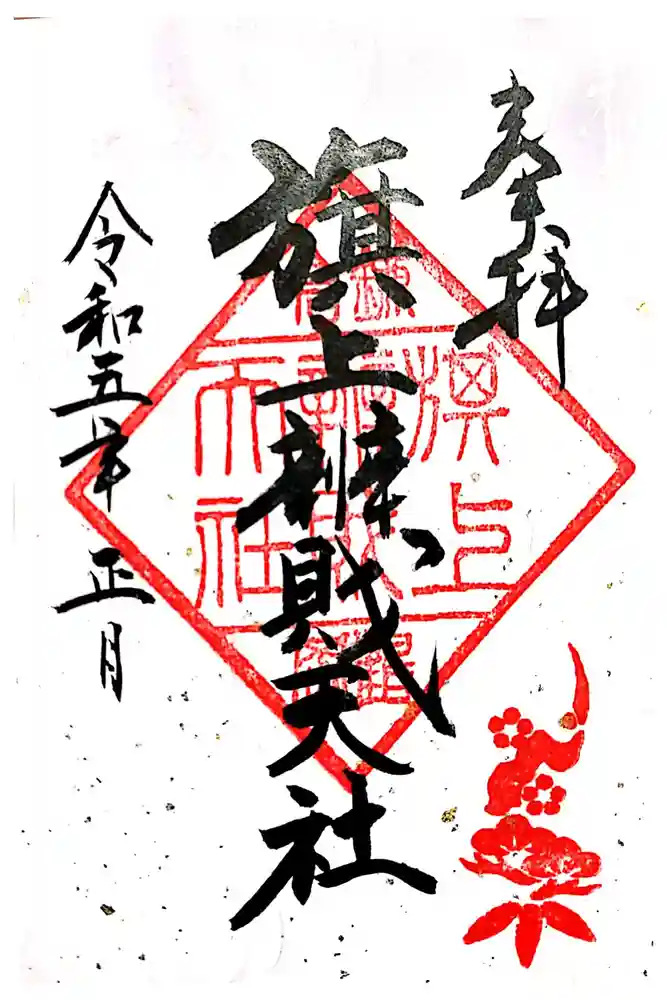 奉拝
旗上辨財天社
令和五年正月
旗上
辨財
天社